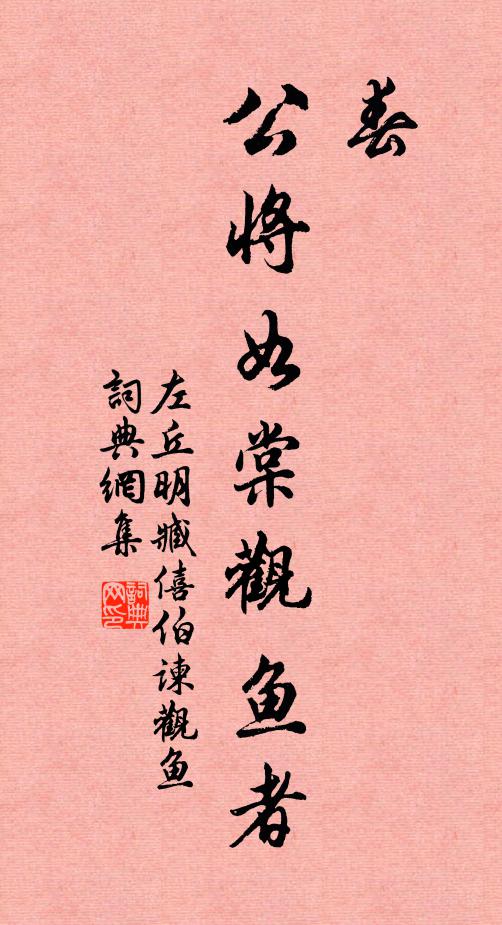 春
公將如棠觀鱼者
左丘明臧僖伯諫觀鱼
詞典網集
詞典网印